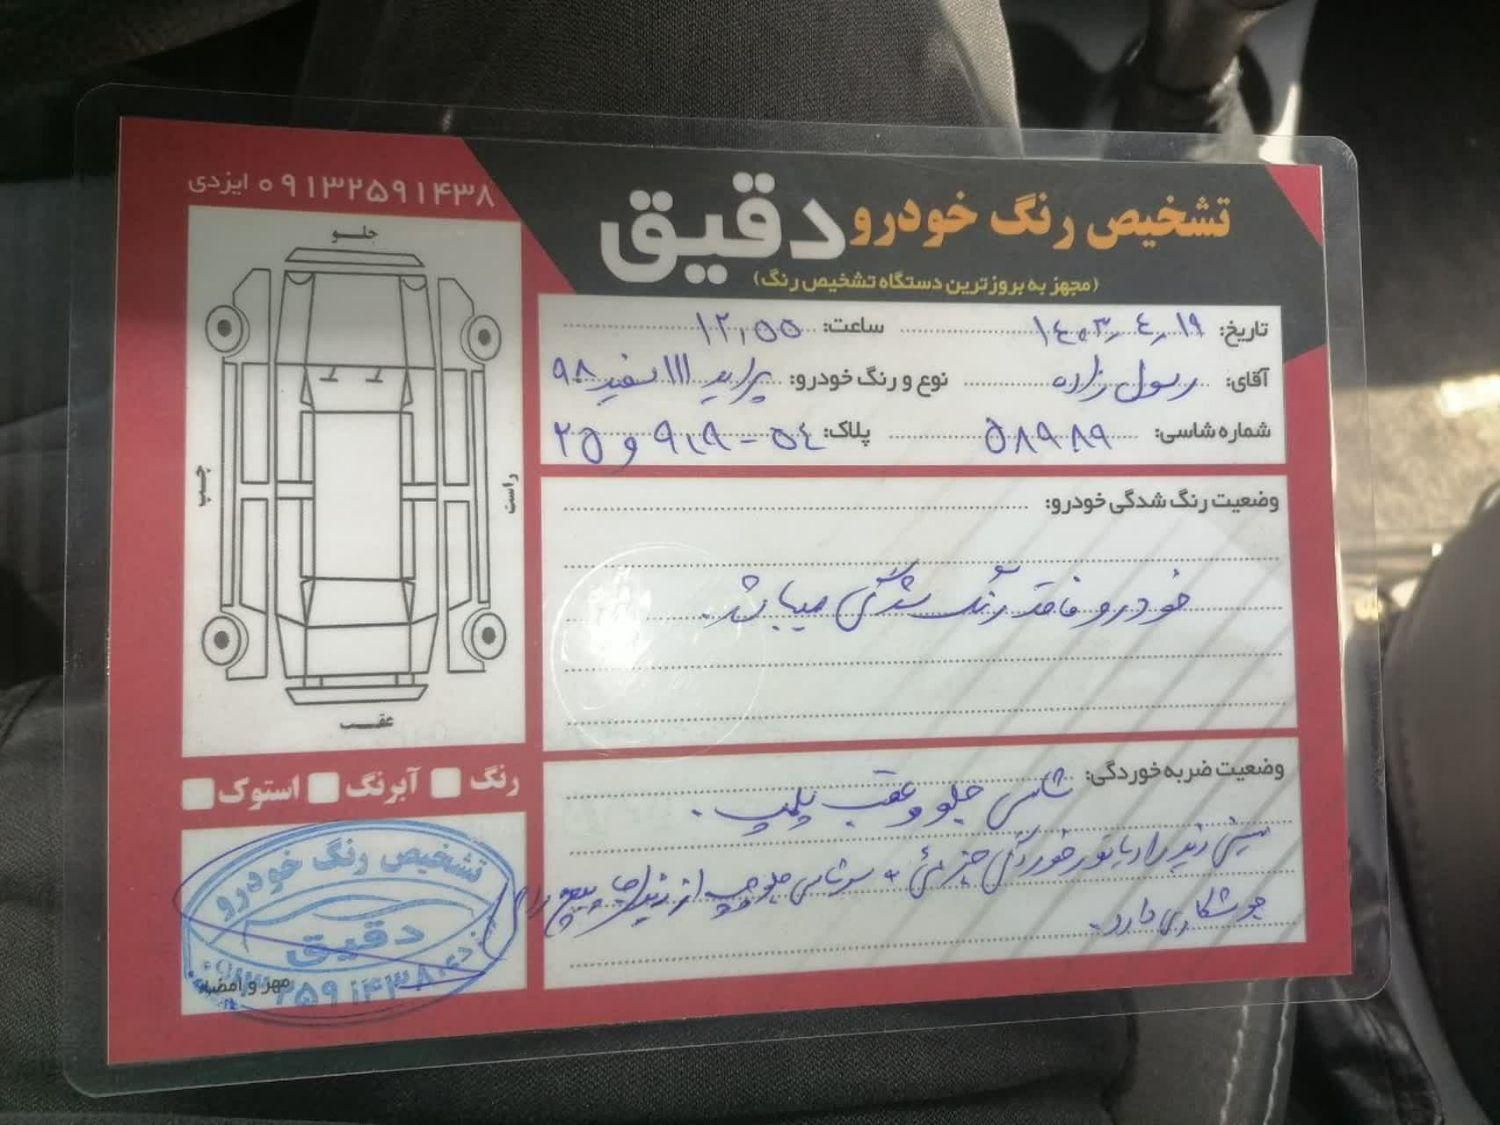 تشخیص رنگ خودرو دقیق
(مجهز به بروزترین دستگاه تشخیص رنگ)
۰۹۱۳۲۵۹۱۴۳۸ ایزدی
تاریخ: ۱۴۰۳,۴,۱۹ ساعت: ۱۲,۵۵
آقای: رسول زاده نوع و رنگ خودرو: پراید ۱۱۱ سفید ۹۸
شماره شاسی: ۵۸۹۸۹ پلاک: ۵۴ - ۹۱۹ و ۲۵
وضعیت رنگ شدگی خودرو:
خودرو فاقد رنگ شدگی میباشد.
وضعیت ضربه خوردگی: شاسی جلو و عقب پلمپ.
سینی زیر رادیاتور خوردگی جزئی - سرشاسی جلو چپ از زیر جا پیچ رام
جوشکاری دارد.
جلو
چپ
راست
عقب
رنگ آبرنگ استوک
تشخیص رنگ خودرو
دقیق
مهر و امضاء